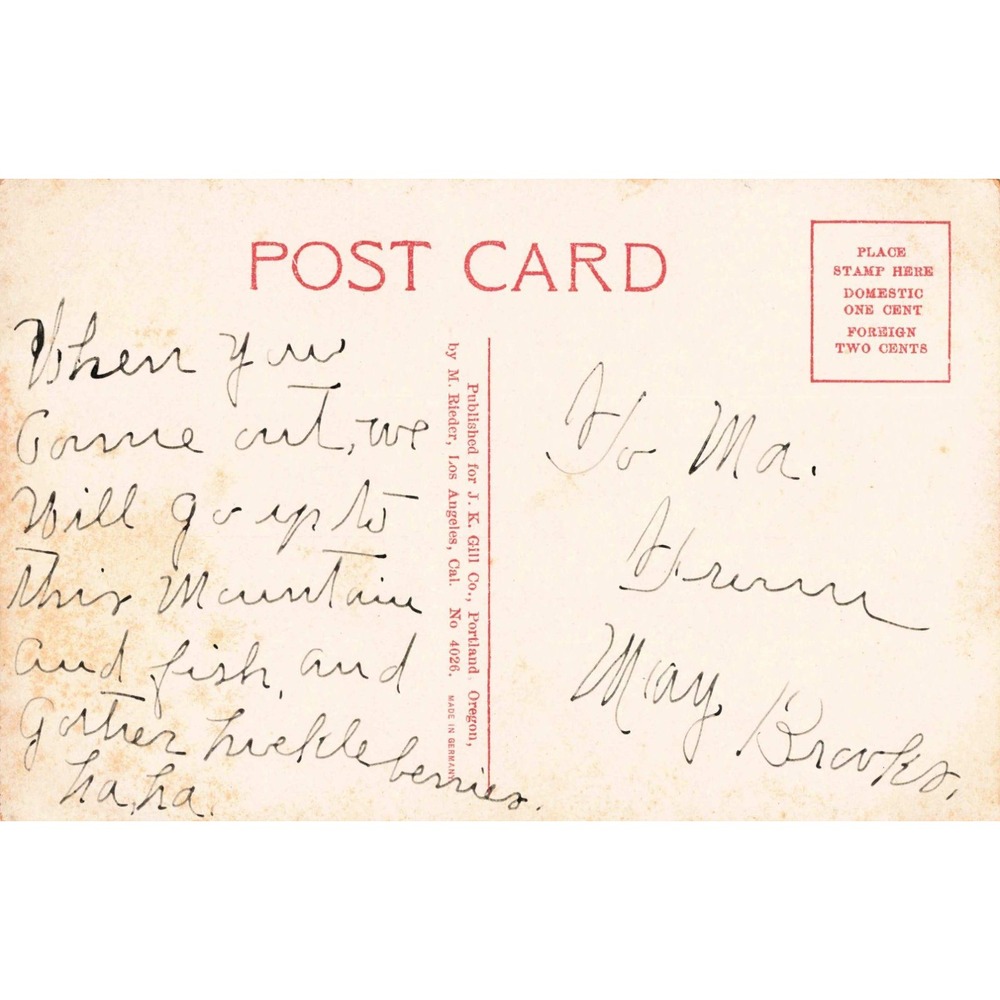 POST CARD
PLACE
STAMP HERE
DOMESTIC
ONE CENT
FOREIGN
TWO CENTS
When you
Come out, we
Will go up to
this Mountain
and fish, and
gather huckleberries.
ha, ha.
Published for J. K. Gill Co., Portland Oregon,
by M. Rieder, Los Angeles, Cal. No 4026. MADE IN GERMANY
To Ma.
From
May Brooks.